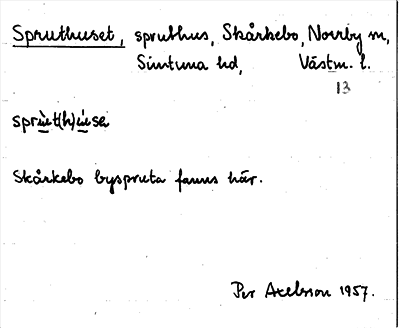 Spruthuset, spruthus, Skårkebo, Norrby sn,
Simtuna hd, Västm. l.
13
sprùt(h)ùsɐ
Skårkebo byspruta fanns här.
Per Axelsson 1957.